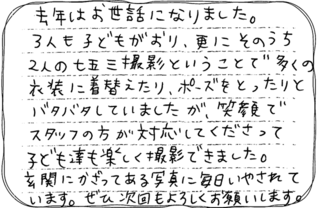 去年はお世話になりました。
3人も子どもがおり、更にそのうち
2人の七五三撮影ということで多くの
衣装に着替えたり、ポーズをとったりと
バタバタしていましたが、笑顔で
スタッフの方が対応してくださって
子ども達も楽しく撮影できました。
玄関にかざってある写真に毎日いやされて
います。ぜひ次回もよろしくお願いします。